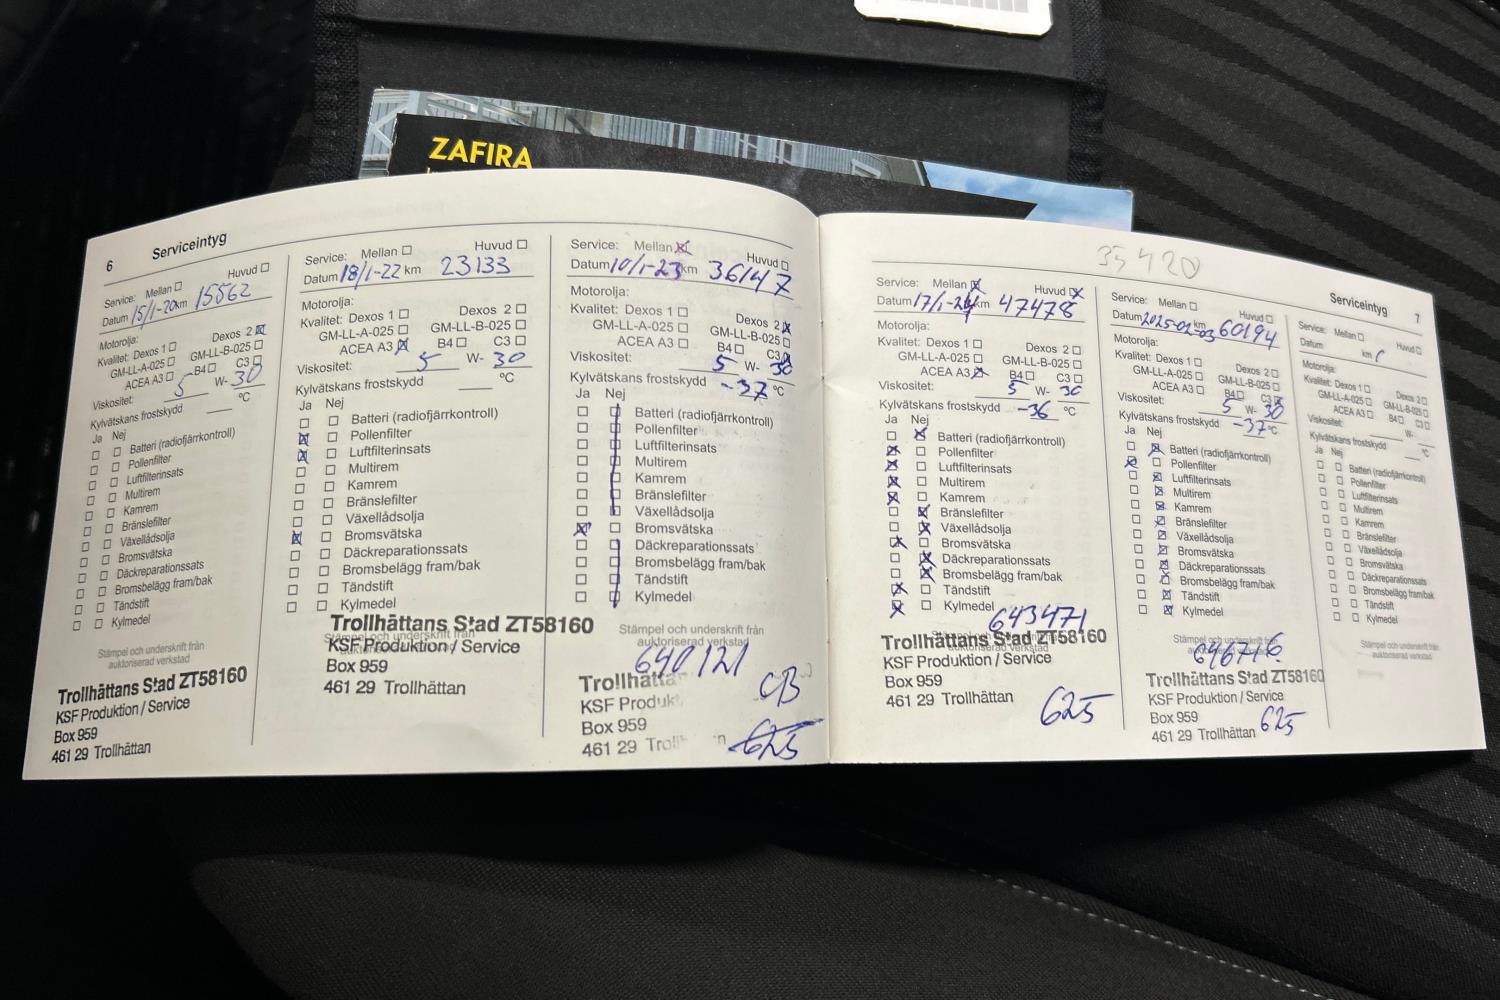 ZAFIRA
6 Serviceintyg
Service: Mellan ☐ Huvud ☐
Datum 15/1-20 km 15562
Motorolja:
Kvalitet: Dexos 1 ☐ Dexos 2 ☒
GM-LL-A-025 ☐ GM-LL-B-025 ☐
ACEA A3 ☐ B4 ☐ C3 ☐
Viskositet: 5 W- 30
Kylvätskans frostskydd ____ °C
Ja Nej
☐ ☐ Batteri (radiofjärrkontroll)
☐ ☐ Pollenfilter
☐ ☐ Luftfilterinsats
☐ ☐ Multirem
☐ ☐ Kamrem
☐ ☐ Bränslefilter
☐ ☐ Växellådsolja
☐ ☐ Bromsvätska
☐ ☐ Däckreparationssats
☐ ☐ Bromsbelägg fram/bak
☐ ☐ Tändstift
☐ ☐ Kylmedel
Stämpel och underskrift från
auktoriserad verkstad
Trollhättans Stad ZT58160
KSF Produktion / Service
Box 959
461 29 Trollhättan
Service: Mellan ☐ Huvud ☐
Datum 18/1-22 km 23133
Motorolja:
Kvalitet: Dexos 1 ☐ Dexos 2 ☐
GM-LL-A-025 ☐ GM-LL-B-025 ☐
ACEA A3 ☒ B4 ☐ C3 ☐
Viskositet: 5 W- 30
Kylvätskans frostskydd ____ °C
Ja Nej
☐ ☐ Batteri (radiofjärrkontroll)
☒ ☐ Pollenfilter
☒ ☐ Luftfilterinsats
☐ ☐ Multirem
☐ ☐ Kamrem
☐ ☐ Bränslefilter
☐ ☐ Växellådsolja
☒ ☐ Bromsvätska
☐ ☐ Däckreparationssats
☐ ☐ Bromsbelägg fram/bak
☐ ☐ Tändstift
☐ ☐ Kylmedel
Stämpel och underskrift från
auktoriserad verkstad
Trollhättans Stad ZT58160
KSF Produktion / Service
Box 959
461 29 Trollhättan
Service: Mellan ☒ Huvud ☐
Datum 10/1-23 km 36147
Motorolja:
Kvalitet: Dexos 1 ☐ Dexos 2 ☒
GM-LL-A-025 ☐ GM-LL-B-025 ☐
ACEA A3 ☐ B4 ☐ C3 ☒
Viskositet: 5 W- 30
Kylvätskans frostskydd -37 °C
Ja Nej
☐ ☐ Batteri (radiofjärrkontroll)
☐ ☐ Pollenfilter
☐ ☐ Luftfilterinsats
☐ ☐ Multirem
☐ ☐ Kamrem
☐ ☐ Bränslefilter
☐ ☐ Växellådsolja
☒ ☐ Bromsvätska
☐ ☐ Däckreparationssats
☐ ☐ Bromsbelägg fram/bak
☐ ☐ Tändstift
☐ ☐ Kylmedel
Stämpel och underskrift från
auktoriserad verkstad
640121
Trollhätta
KSF Produk
Box 959
461 29 Troll n
CB
625
35420
Serviceintyg 7
Service: Mellan ☒ Huvud ☒
Datum 17/1-24 km 47478
Motorolja:
Kvalitet: Dexos 1 ☐ Dexos 2 ☐
GM-LL-A-025 ☐ GM-LL-B-025 ☐
ACEA A3 ☒ B4 ☐ C3 ☐
Viskositet: 5 W- 30
Kylvätskans frostskydd -36 °C
Ja Nej
☐ ☒ Batteri (radiofjärrkontroll)
☒ ☐ Pollenfilter
☒ ☐ Luftfilterinsats
☒ ☐ Multirem
☒ ☐ Kamrem
☐ ☒ Bränslefilter
☐ ☒ Växellådsolja
☒ ☐ Bromsvätska
☐ ☒ Däckreparationssats
☐ ☒ Bromsbelägg fram/bak
☒ ☐ Tändstift
☒ ☐ Kylmedel
643471
Trollhättans Stad ZT58160
KSF Produktion / Service
Box 959
461 29 Trollhättan
625
Service: Mellan ☐ Huvud ☐
Datum 2025-02-03 km 60194
Motorolja:
Kvalitet: Dexos 1 ☐ Dexos 2 ☐
GM-LL-A-025 ☐ GM-LL-B-025 ☐
ACEA A3 ☐ B4 ☐ C3 ☒
Viskositet: 5 W- 30
Kylvätskans frostskydd -37 °C
Ja Nej
☐ ☒ Batteri (radiofjärrkontroll)
☒ ☐ Pollenfilter
☐ ☒ Luftfilterinsats
☐ ☒ Multirem
☐ ☒ Kamrem
☐ ☒ Bränslefilter
☐ ☒ Växellådsolja
☐ ☒ Bromsvätska
☐ ☒ Däckreparationssats
☐ ☒ Bromsbelägg fram/bak
☐ ☒ Tändstift
☐ ☒ Kylmedel
Stämpel och underskrift från
auktoriserad verkstad
646776
Trollhättans Stad ZT58160
KSF Produktion / Service
Box 959
461 29 Trollhättan
625
Service: Mellan ☐ Huvud ☐
Datum km
Motorolja:
Kvalitet: Dexos 1 ☐ Dexos 2 ☐
GM-LL-A-025 ☐ GM-LL-B-025 ☐
ACEA A3 ☐ B4 ☐ C3 ☐
Viskositet: W-
Kylvätskans frostskydd ____ °C
Ja Nej
☐ ☐ Batteri (radiofjärrkontroll)
☐ ☐ Pollenfilter
☐ ☐ Luftfilterinsats
☐ ☐ Multirem
☐ ☐ Kamrem
☐ ☐ Bränslefilter
☐ ☐ Växellådsolja
☐ ☐ Bromsvätska
☐ ☐ Däckreparationssats
☐ ☐ Bromsbelägg fram/bak
☐ ☐ Tändstift
☐ ☐ Kylmedel
Stämpel och underskrift från
auktoriserad verkstad